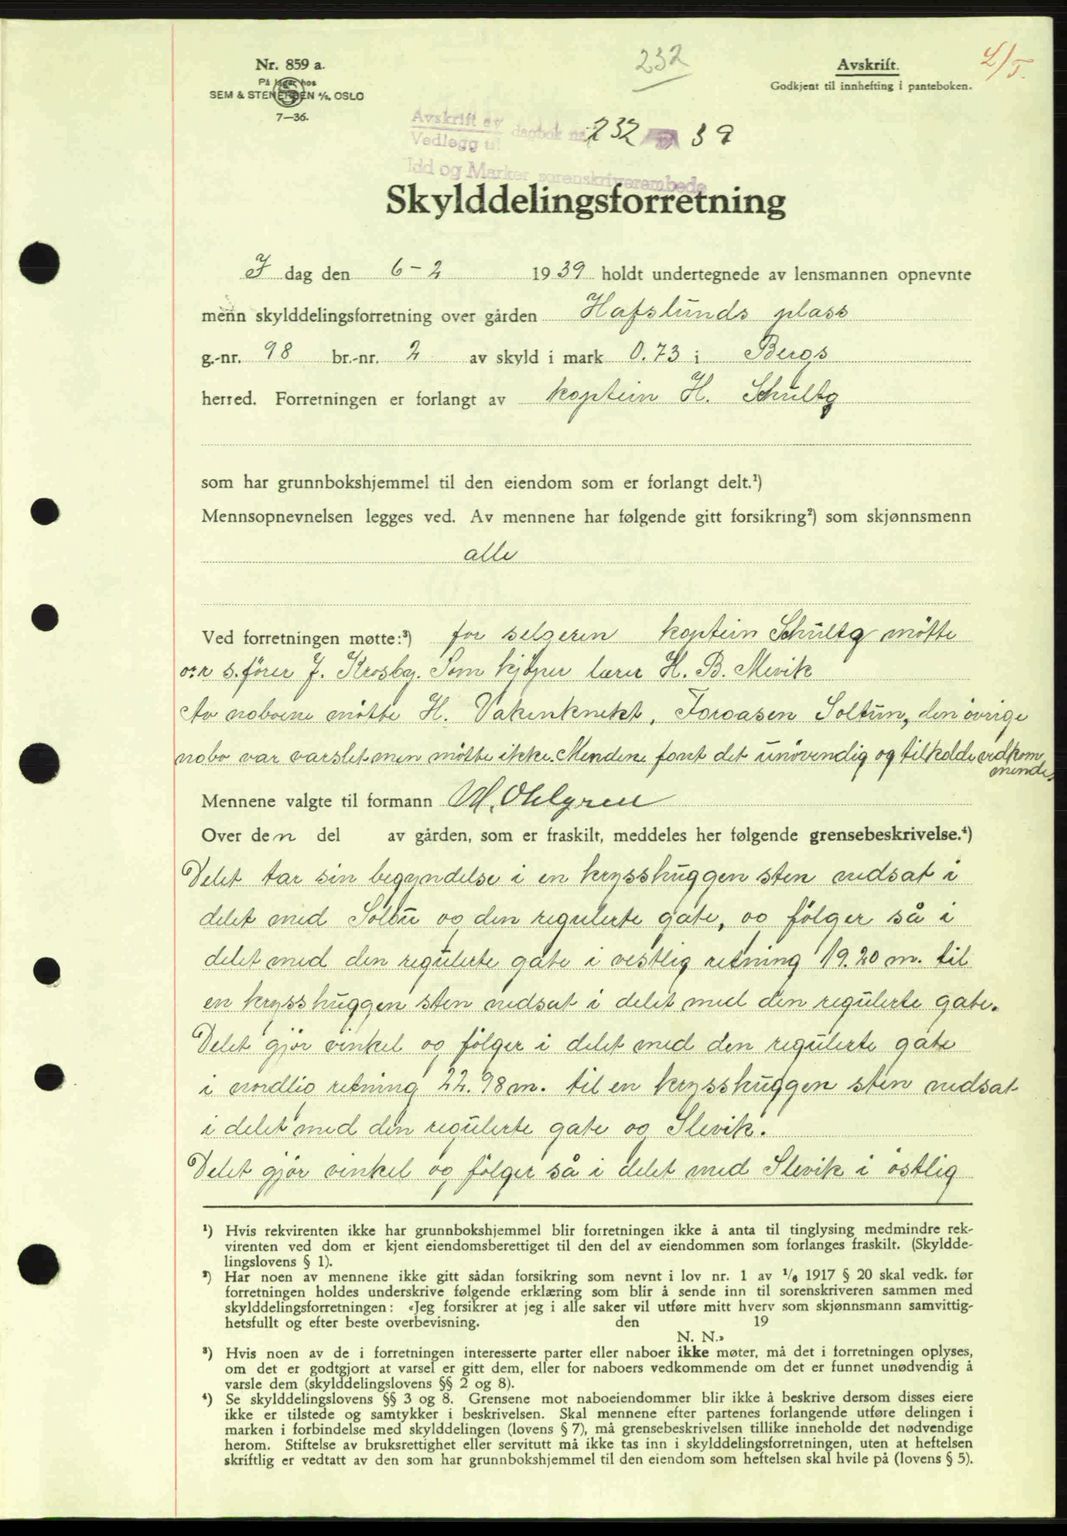 Nr. 859 a.
På lager hos
SEM & STENERSEN A/S, OSLO
7—36.
232
Avskrift.
Godkjent til innhefting i panteboken.
4/5.
Avskrift av
Vedlegg til dagbok nr. 232 39
Idd og Marker sorenskriverembede
Skylddelingsforretning
I dag den 6-2 1939 holdt undertegnede av lensmannen opnevnte
menn skylddelingsforretning over gården Hafslunds plass
g.-nr. 98 br.-nr. 2 av skyld i mark 0.73 i Bergs
herred. Forretningen er forlangt av kaptein H. Schultz
som har grunnbokshjemmel til den eiendom som er forlangt delt.¹)
Mennsopnevnelsen legges ved. Av mennene har følgende gitt forsikring²) som skjønnsmenn
alle
Ved forretningen møtte:³) for selgeren kaptein Schultz møtte
o.r.s.fører J. Krosby. Som kjøper lærer H. B. Mevik
Av naboene møtte H. Vakenknekt, Soltun, den øvrige
nabo var varslet men møtte ikke. Mendene fant det unøvendig og tilkolde vedkom
mende.
Mennene valgte til formann M. Ohlgren
Over den del av gården, som er fraskilt, meddeles her følgende grensebeskrivelse.⁴)
Delet tar sin begyndelse i en krysshuggen sten nedsat i
delet med Solbu og den regulerte gate, og følger så i
delet med den regulerte gate i vestlig retning 19.20 m. til
en krysshuggen sten nedsat i delet med den regulerte gate.
Delet gjør vinkel og følger i delet med den regulerte gate
i nordlig retning 22.98 m. til en krysshuggen sten nedsat
i delet med den regulerte gate og Slevik.
Delet gjør vinkel og følger så i delet med Slevik i östlig
¹) Hvis rekvirenten ikke har grunnbokshjemmel blir forretningen ikke å anta til tinglysing medmindre rek-
virenten ved dom er kjent eiendomsberettiget til den del av eiendommen som forlanges fraskilt. (Skyldde-
lingslovens § 1).
²) Har noen av mennene ikke gitt sådan forsikring som nevnt i lov nr. 1 av 1/6 1917 § 20 skal vedk. før
forretningen holdes underskrive følgende erklæring som blir å sende inn til sorenskriveren sammen med
skylddelingsforretningen: «Jeg forsikrer at jeg i alle saker vil utføre mitt hverv som skjønnsmann samvittig-
hetsfullt og efter beste overbevisning. den 19
N. N.»
³) Hvis noen av de i forretningen interesserte parter eller naboer ikke møter, må det i forretningen oplyses,
om det er godtgjort at varsel er gitt dem, eller for naboers vedkommende om det er funnet unødvendig å
varsle dem (skylddelingslovens §§ 2 og 8).
⁴) Se skylddelingslovens §§ 3 og 8. Grensene mot naboeiendommer blir ikke å beskrive dersom disses eiere
ikke er tilstede og samtykker i beskrivelsen. Skal mennene efter partenes forlangende utføre delingen i
marken i forbindelse med skylddelingen (lovens § 7), må grensebeskrivelsen tillike inneholde det nødvendige
herom. Stiftelse av bruksrettighet eller servitutt må ikke tas inn i skylddelingsforretningen, uten at heftelsen
skriftlig er vedtatt av den som har grunnbokshjemmel til den eiendom som heftelsen skal hvile på (lovens § 5).